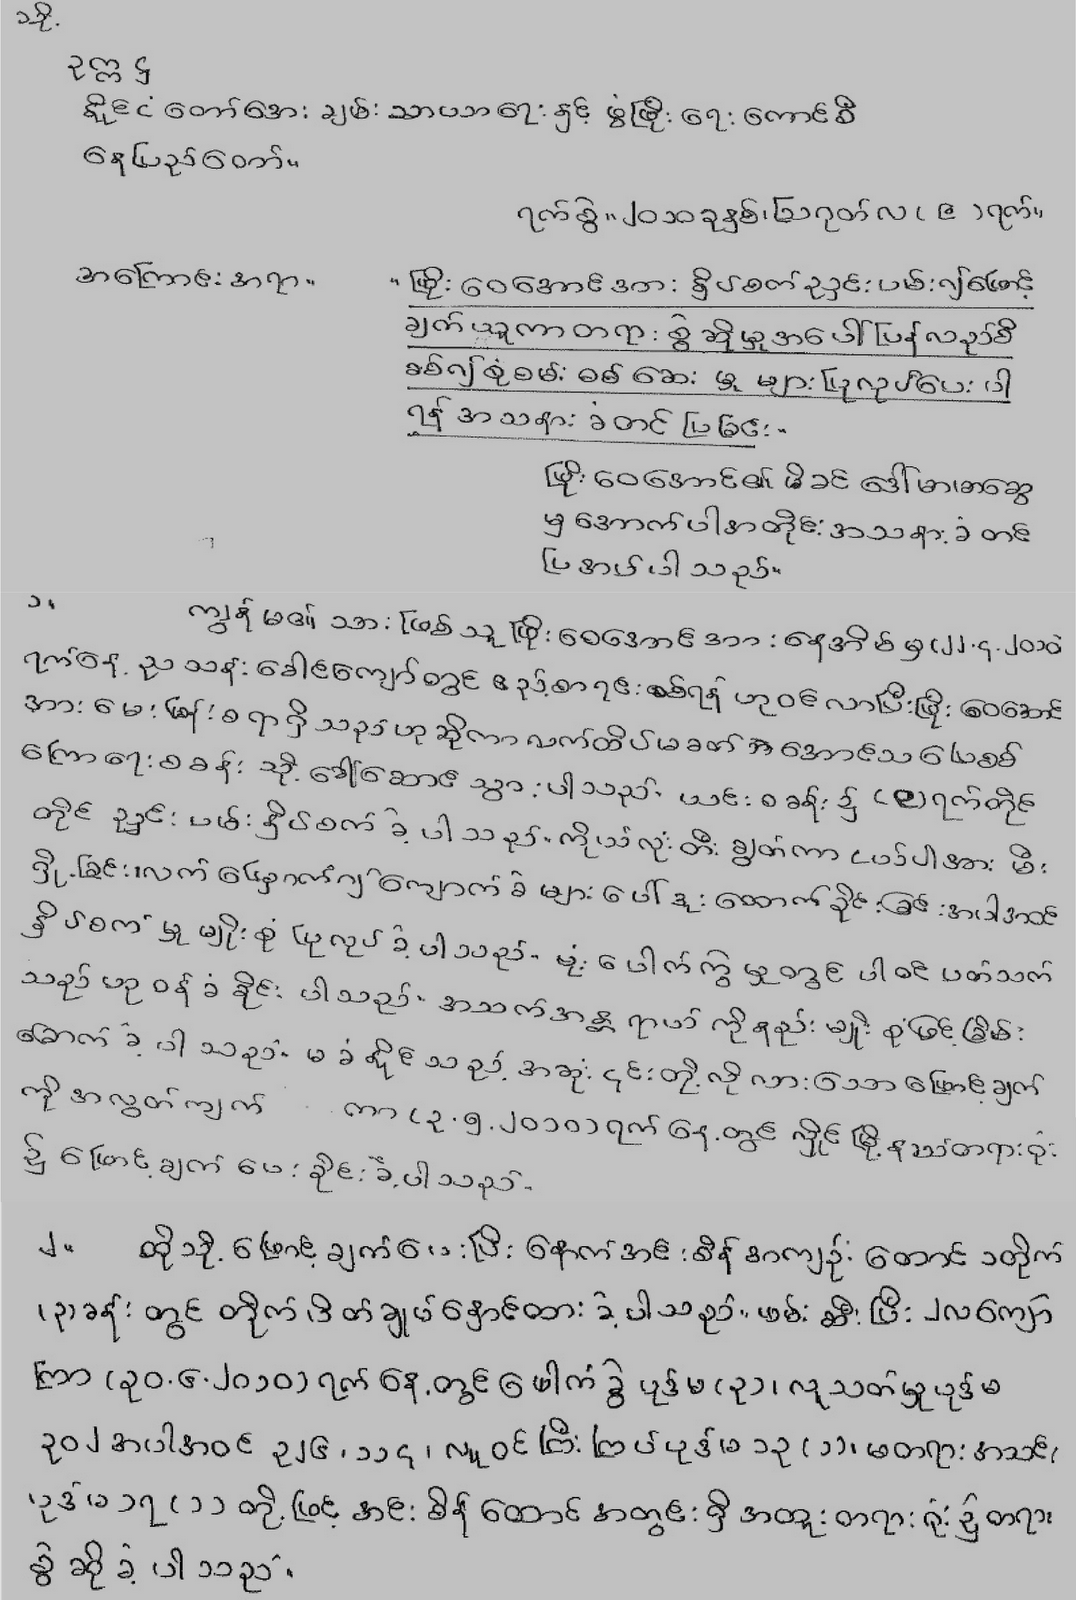 သို့
ဥက္ကဋ္ဌ
နိုင်ငံတော်အေးချမ်းသာယာရေးနှင့် ဖွံ့ဖြိုးရေးကောင်စီ
နေပြည်တော်။
ရက်စွဲ။ ၂၀၁၀ခုနှစ်၊ ဩဂုတ်လ ( ၉ )ရက်။
အကြောင်းအရာ။ "ဖြိုးဝေအောင်အား နှိပ်စက်ညှဉ်းပမ်း၍ဖြောင့်
ချက်ယူကာတရားစွဲဆိုမှုအပေါ်ပြန်လည်စီ
စစ်၍စုံစမ်းစစ်ဆေးမှုများပြုလုပ်ပေးပါ
ရန် အသနားခံတင်ပြခြင်း"
ဖြိုးဝေအောင်၏မိခင် ဒေါ်မာမာဆွေ
မှအောက်ပါအတိုင်းအသနားခံတင်
ပြအပ်ပါသည်။
၁။ ကျွန်မ၏သားဖြစ်သူဖြိုးဝေအောင်အားနေအိမ်မှ(၂၂.၄.၂၀၁၀)
ရက်နေ့ ညသန်းခေါင်ကျော်တွင် ဧည့်စာရင်းစစ်ရန်ဟုဝင်လာပြီးဖြိုးဝေအောင်
အားမေးမြန်းစရာရှိသည်ဟုဆိုကာလက်ထိပ်မခတ် အောင်သပြေစစ်
ကြောရေးစခန်းသို့ခေါ်ဆောင်သွားပါသည်။ ယင်းစခန်း၌ (၉)ရက်တိုင်
တိုင် ညှဉ်းပမ်းနှိပ်စက်ခဲ့ပါသည်။ ကိုယ်လုံးတီးချွတ်ကာ ငယ်ပါအား မီး
ရှို့ခြင်း၊လက်ဖြောက်၍ကျောက်ခဲများပေါ်ဒူးထောက်ခိုင်းခြင်းအပါအဝင်
နှိပ်စက်မှုမျိုးစုံပြုလုပ်ခဲ့ပါသည်။ ဗုံးပေါက်ကွဲမှုတွင်ပါဝင်ပတ်သက်
သည်ဟုဝန်ခံခိုင်းပါသည်။ အသက်အန္တရာယ်ကိုနည်းမျိုးစုံဖြင့်ခြိမ်း
ခြောက်ခဲ့ပါသည်။ မခံနိုင်သည့်အဆုံး၎င်းတို့လိုလားသောဖြောင့်ချက်
ကိုအလွတ်ကျက် ကာ (၃.၅.၂၀၁၀)ရက်နေ့တွင်လှိုင်မြို့နယ်တရားရုံး
၌ဖြောင့်ချက်ပေးခိုင်းခဲ့ပါသည်။
၂။ ထိုသို့ဖြောင့်ချက်ပေးပြီးနောက်အင်းစိန်အကျဉ်းထောင် ၁တိုက်
(၃)ခန်းတွင်တိုက်ပိတ်ချုပ်နှောင်ထားခဲ့ပါသည်။ ဖမ်းဆီးပြီး ၂လကျော်
ကြာ (၃၀.၆.၂၀၁၀)ရက်နေ့တွင်ပေါက်ကွဲပုဒ်မ(၃)၊ လူသတ်မှုပုဒ်မ
၃၀၂အပါအဝင် ၃၂၆၊ ၁၁၄၊ လူဝင်ကြီးကြပ်ပုဒ်မ ၁၃(၁)၊ မတရားအသင်း
ပုဒ်မ ၁၇(၁)တို့ဖြင့် အင်းစိန်ထောင်အတွင်းရှိအထူးတရားရုံး၌တရား
စွဲဆိုခဲ့ပါသည်။